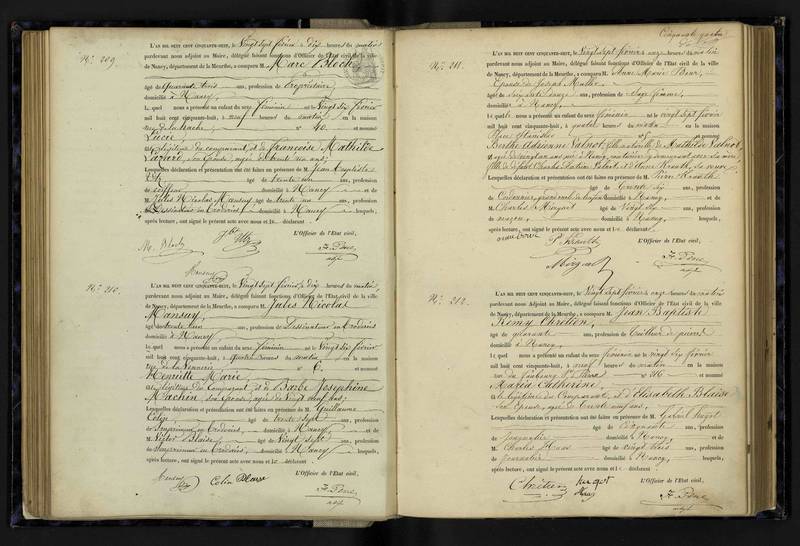 N° 209
L'AN MIL HUIT CENT CINQUANTE-HUIT, le Vingt Sept février à dix heures du matin
pardevant nous adjoint au Maire, délégué faisant fonctions d'Officier de l'Etat civil de la ville
de Nancy, département de la Meurthe, a comparu M. Marc Bloch
âgé de quarante trois ans, profession de Propriétaire
domicilié à Nancy
lequel nous a présenté un enfant du sexe féminin né le Vingt Six février
mil huit cent cinquante-huit, à neuf heures du matin en la maison
rue de la hache n° 40. et nommé
Lucie
légitime du comparant et de françoise Mathilde
son épouse, agée de trente un ans;
Lesquelles déclaration et présentation ont été faites en présence de M. Jean Baptiste
âgé de trente un ans, profession
de coiffeur domicilié à Nancy et de
M. Jules Nicolas Mansuy âgé de trente un ans, profession
de Dessinateur en Broderies domicilié à Nancy lesquels,
après lecture, ont signé le présent acte avec nous et le déclarant
L'Officier de l'Etat civil,
M. Bloch
Mansuy
adjt
N° 210.
L'AN MIL HUIT CENT CINQUANTE-HUIT, le Vingt Sept février à dix heures du matin,
pardevant nous Adjoint au Maire, délégué faisant fonctions d'Officier de l'Etat civil de la ville
de Nancy, département de la Meurthe, a comparu M. Jules Nicolas
Mansuy,
âgé de trente un ans, profession de Dessinateur en Broderies
domicilié à Nancy
lequel nous a présenté un enfant du sexe féminin né le Vingt Six février
mil huit cent cinquante-huit, à quatre heures du matin, en la maison
rue de la n° 6. et nommé
Henriette Marie,
légitime du Comparant et de Barbe Joséphine
Machin, son épouse, agée de Vingt neuf ans;
Lesquelles déclaration et présentation ont été faites en présence de M. Guillaume
âgé de trente Sept ans, profession
de en Broderies, domicilié à Nancy, et de
M. Victor Blaise âgé de Vingt Sept ans, profession
de en Broderies, domicilié à Nancy lesquels,
après lecture, ont signé le présent acte avec nous et le déclarant
L'Officier de l'Etat civil,
Mansuy
Colin Blaise
adjt
Cinquante quatre
N° 211.
L'AN MIL HUIT CENT CINQUANTE-HUIT, le Vingt Sept février onze heures du matin
pardevant nous Adjoint au Maire, délégué faisant fonctions d'Officier de l'Etat civil de la ville
de Nancy, département de la Meurthe, a comparu M. Anne Marie
Epouse de Joseph
âgé de ans, profession de Sage femme,
domicilié à Nancy
lequel nous a présenté un enfant du sexe féminin né le vingt sept février
mil huit cent cinquante-huit, à quatre heures du matin en la maison
Place Stanislas n° et nommé
Berthe Adrienne Valnot,
Lesquelles déclaration et présentation ont été faites en présence de M. Pierre
âgé de Trente Six ans, profession
de Cordonnier, domicilié à Nancy, et de
M. Charles âgé de Vingt Six ans, profession
de maçon, domicilié à Nancy, lesquels,
après lecture, ont signé le présent acte avec nous et le déclarant
L'Officier de l'Etat civil,
adjt
N° 212.
L'AN MIL HUIT CENT CINQUANTE-HUIT, le Vingt sept février onze heures du matin
pardevant nous Adjoint au Maire, délégué faisant fonctions d'Officier de l'Etat civil de la ville
de Nancy, département de la Meurthe, a comparu M. Jean Baptiste
Remy Chrétien,
âgé de quarante ans, profession de Tailleur de pierres
domicilié à Nancy
lequel nous a présenté un enfant du sexe féminin né le vingt six février
mil huit cent cinquante-huit, à neuf heures du matin en la maison
rue du faubourg St Pierre n° et nommé
Maria Catherine,
légitime du Comparant, et d'Elisabeth Blaise
Son épouse, agée de Trente neuf ans.
Lesquelles déclaration et présentation ont été faites en présence de M. Gabriel Hugot
âgé de Cinquante ans, profession
de Journalier domicilié à Nancy, et de
M. Charles Haas âgé de vingt trois ans, profession
de journalier domicilié à Nancy, lesquels,
après lecture, ont signé le présent acte avec nous et le déclarant
L'Officier de l'Etat civil,
Chrétien hugot
Haas
adjt